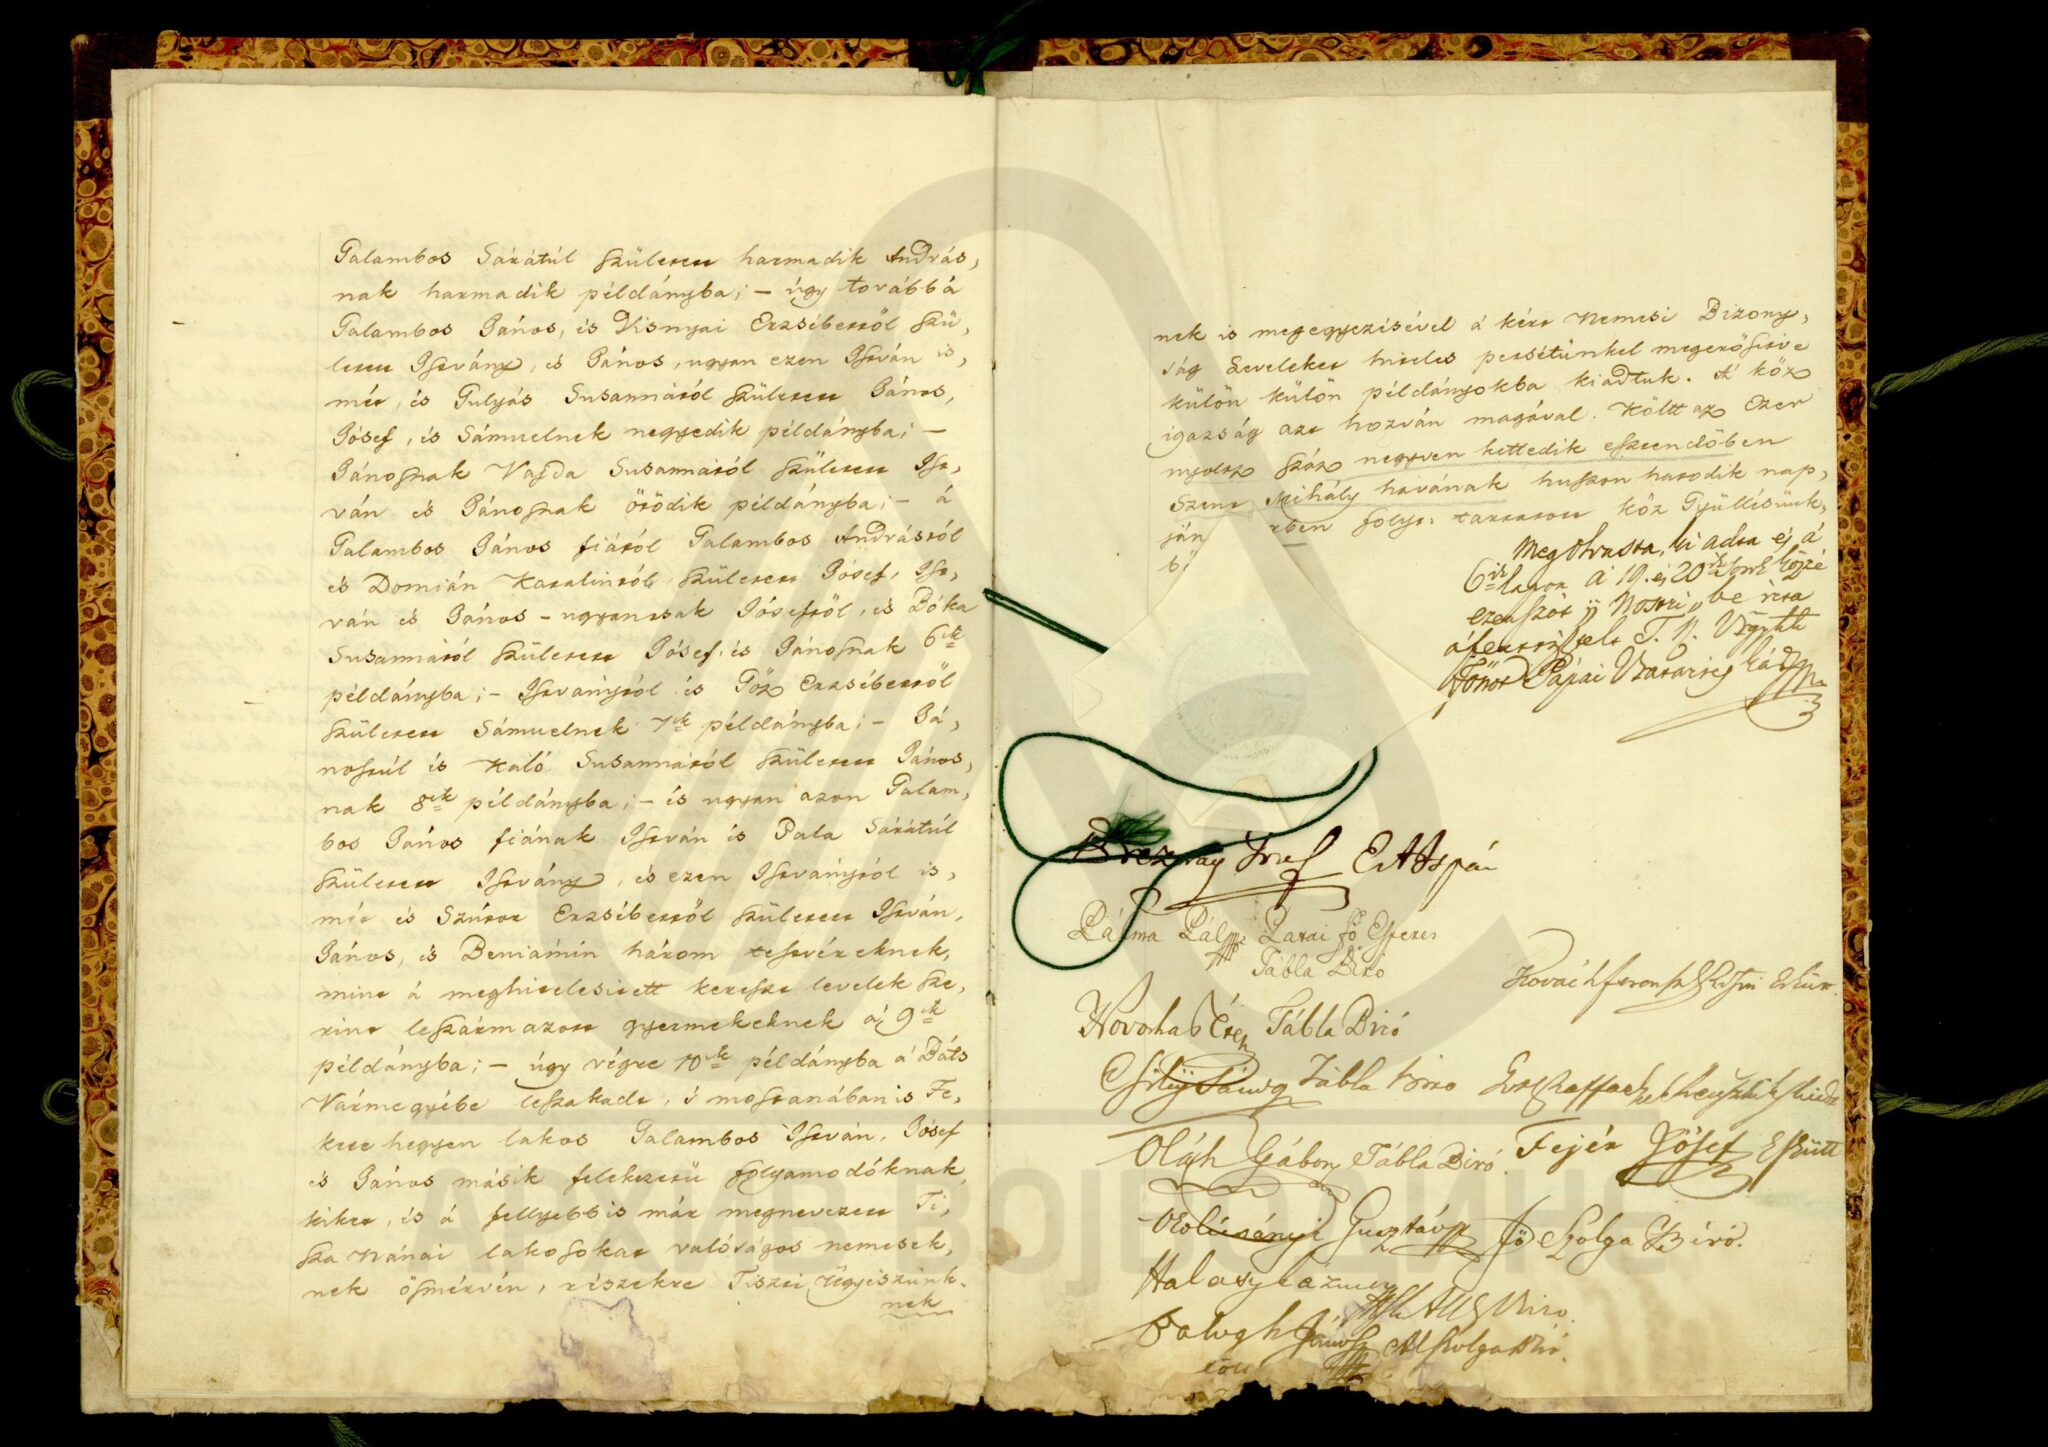 Galambos Sárátúl született harmadik András,
nak harmadik példányba; – úgy továbbá
Galambos János, és Visnyai Erzsébettől szü,
letett Istvány, és János, ugyan ezen István is,
mét, és Gulyás Susannától született János,
Jósef, és Sámuelnek negyedik példányba; –
Jánosnak Vajda Susannától született Ist,
ván és Jánosnak ötödik példányba; – á
Galambos János fiától Galambos Andrástól
és Domián Katalintól született Jósef, Ist,
ván és János – ugyancsak Jóseftől, és Bóka
Susannától született Jósef, és Jánosnak 6ik
példányba; – Istványtól és Göz Erzsébettől
született Sámuelnek 7ik példányba; – Já,
nostúl és Kaló Susannától született János,
nak 8ik példányba; – és ugyan azon Galam,
bos János fiának István és Pala Sárátúl
született Istvány, és ezen Istványtól is,
mét és Szútor Erzsébettől született István,
János, és Beniámin három testvéreknek,
mint á meghitelesitett kereszt levelek sze,
rint leszármazott gyermekeknek á 9ik
példányba; – úgy végre 10ik példányba á Báts
Vármegyébe leszakadt, s mostanában is Fe,
kete hegyen lakos Galambos István, Jósef
és János másik felekezetü folyamodóknak,
kiket, és á fellyebb is már megnevezett Ti,
sza Nánai lakosokat valóságos nemesek,
nek ösmérvén, részekre Tiszti Ügyészünk,
nek
nek is megegyezésével á kért Nemesi Bizony,
ság Leveleket hiteles petsétünkel megerősitve
külön külön példányokba kiadtuk. A' köz
igazság azt hozván magával. Költt az Ezer
nyoltz száz negyven kettedik esztendőben
Szent Mihály havának huszon harodik nap,
ján rben folyt. tartatott köz Gyüllésünk,
bő
Megolvasta, ki adta és á
6ik lapon á 19. és 20ik sorok közzé
ezen szót ii Nostri be irta
Pápai
József
Pálma Pál Fő Esperes
Tábla Biró
Tábla Biró
Tábla Biro
Oláh Gábor Tábla Biró
Fejér Jósef Eskütt
Gusztáv fő Szolga Biró.
Halasy Cazmer
Al Biro.
Balogh János Al Szolga Biró.